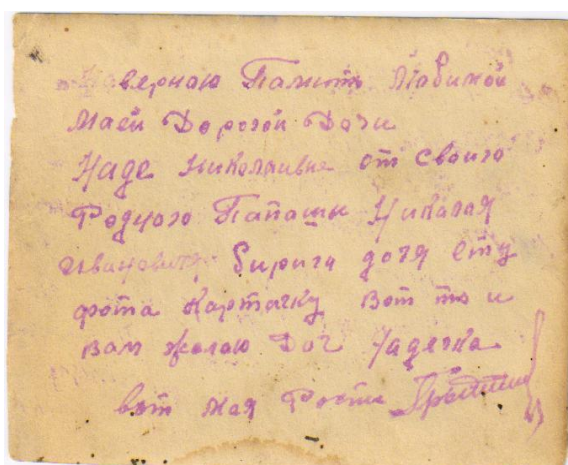 На вернаю Память Любимой
Маей Дорогой Дочи
Наде Николаивне от своиго
Родного Папашы Николая
Ивановича бириги дочя ету
фота карточку вот то и
вам желаю Доч Надечка
вот моя Роспи